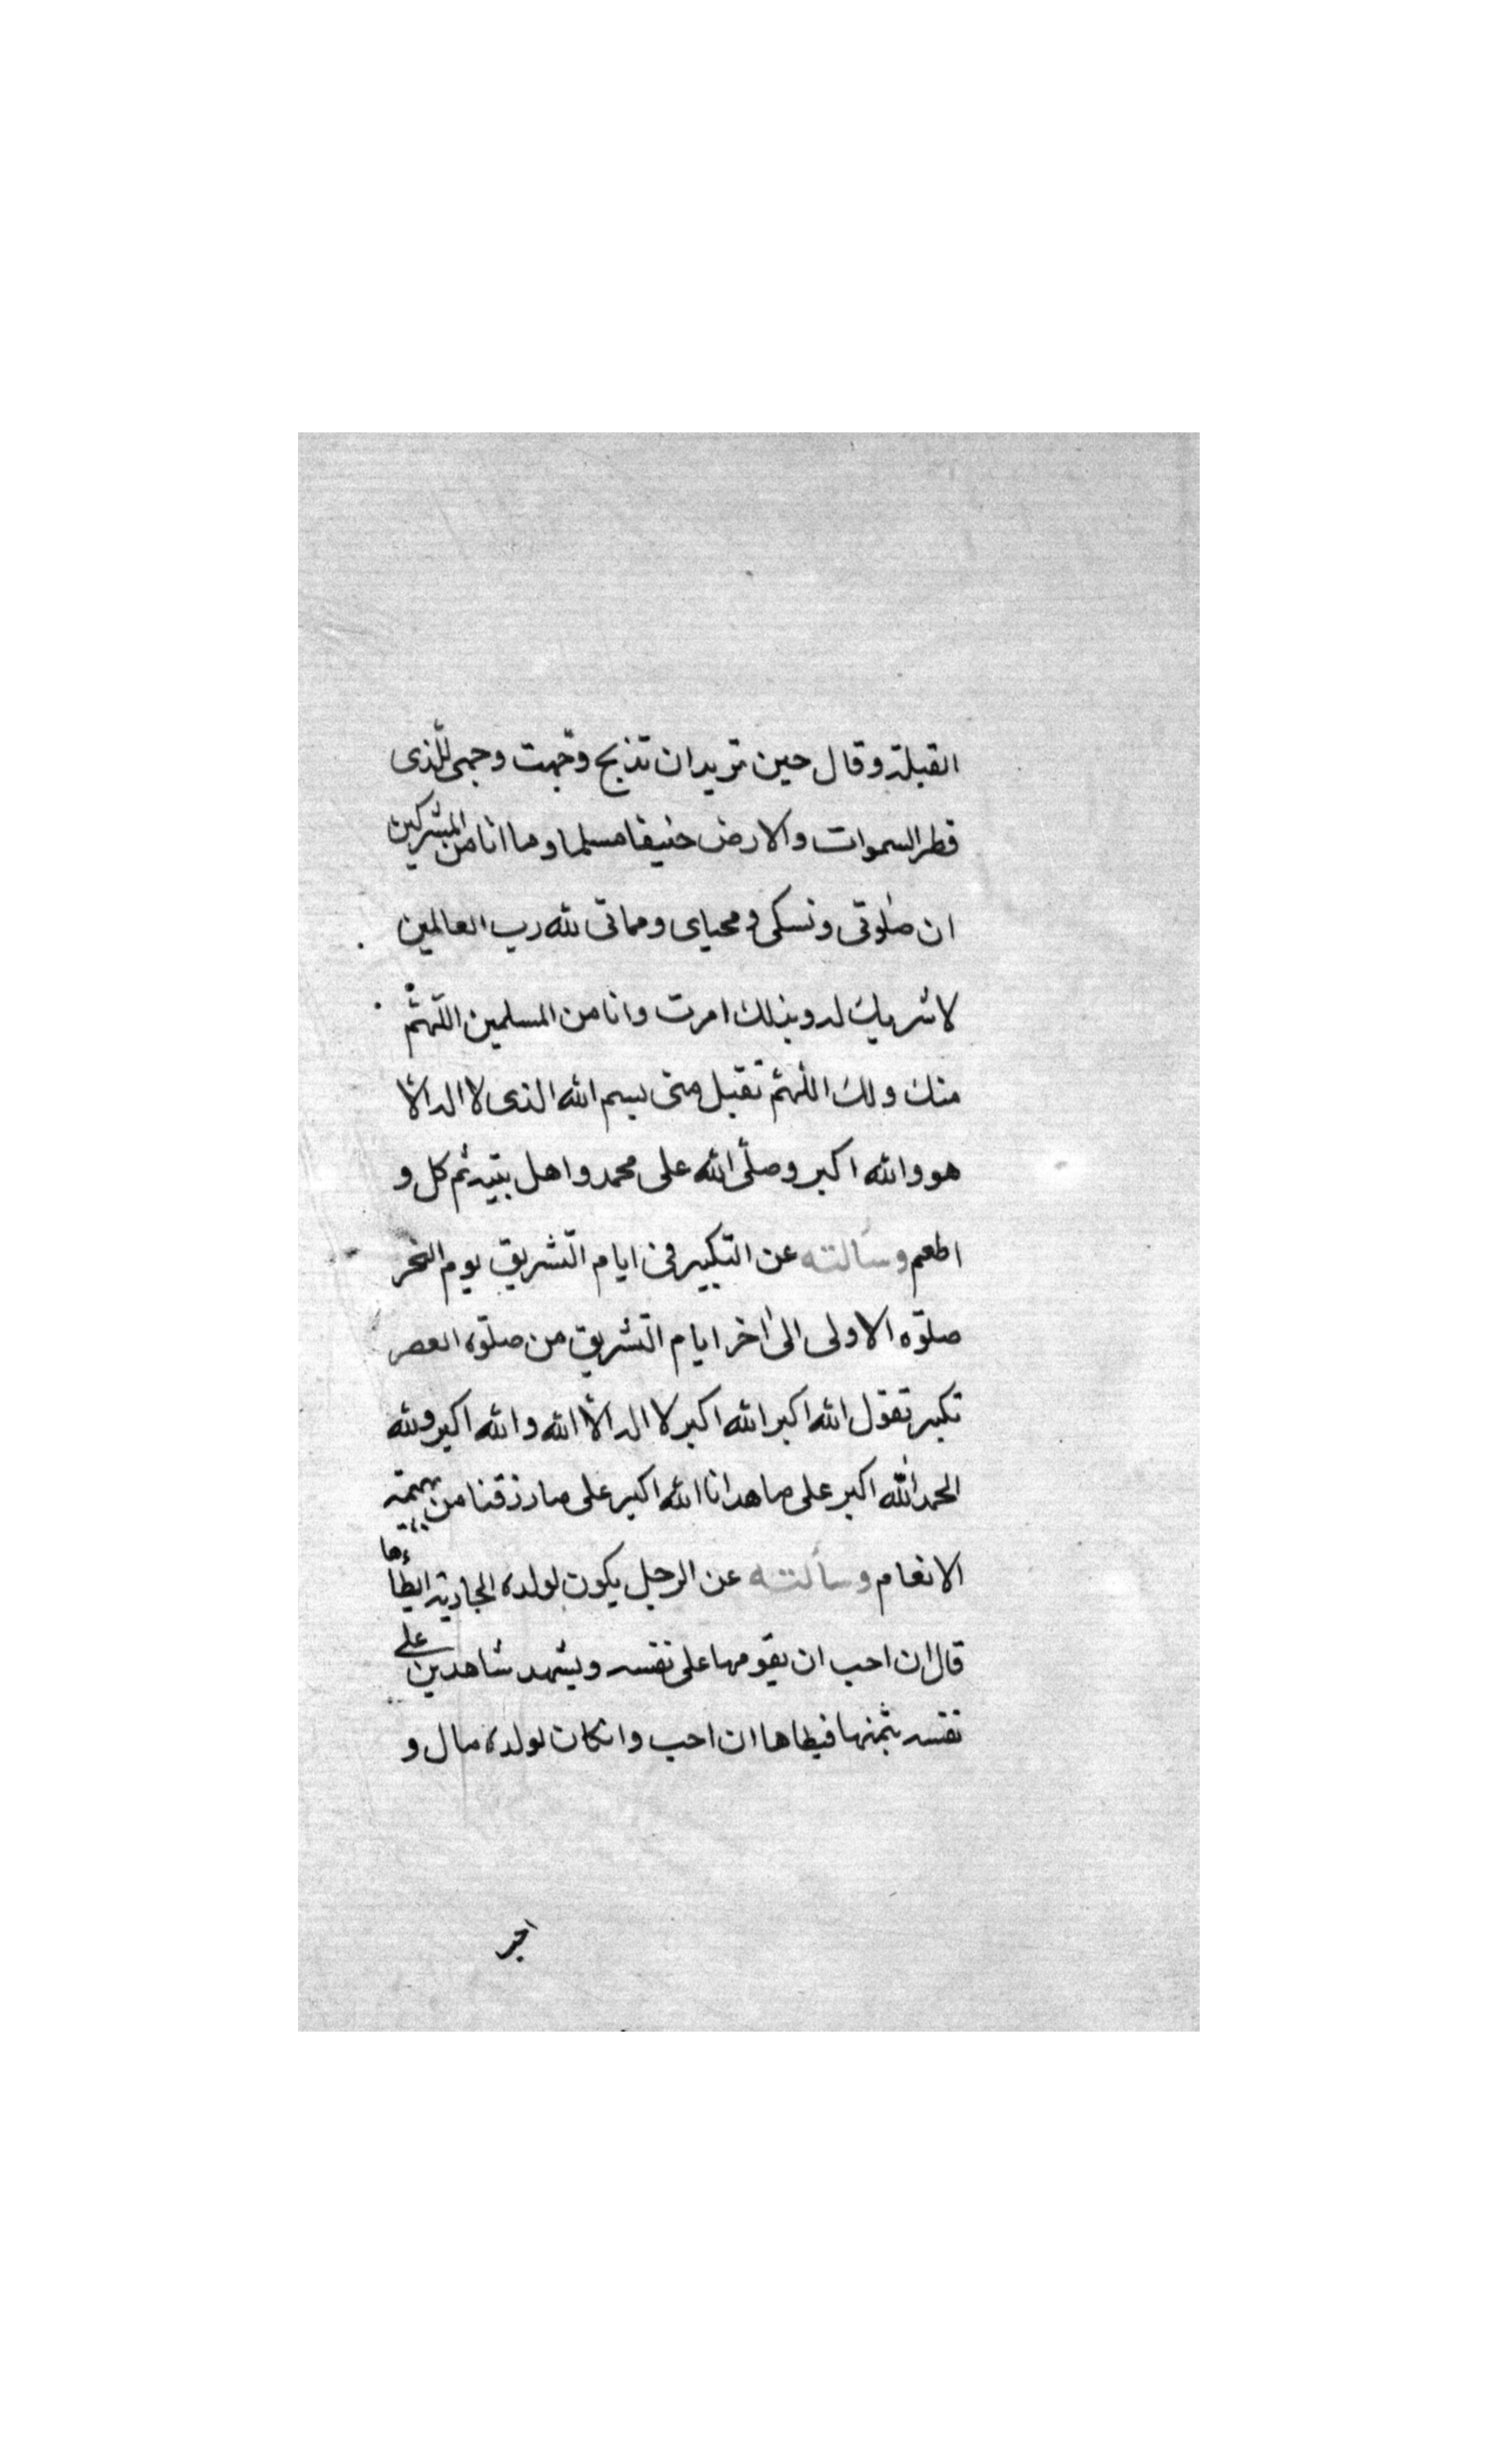 القبلة وقال حين تريد ان تذبح وجّهت وجهى للّذى
فطر السموات والارض حنيفا مسلما وما انا من المشركين
ان صلوتى ونسكى ومحياى ومماتى لله رب العالمين
لا شريك له وبذلك امرت وانا من المسلمين اللّهمّ
منك ولك اللّهمّ تقبل منى بسم الله الذى لا اله الّا
هو والله اكبر وصلّى الله على محمد واهل بيته ثم كل و
اطعم وسألته عن التكبير فى ايام التّشريق يوم النحر
صلوة الاولى الى اخر ايام التّشريق من صلوة العصر
تكبر تقول الله اكبر الله اكبر لا اله الّا الله والله اكبر ولله
الحمد الله اكبر على ما هدانا الله اكبر على ما رزقنا من بهيمة
الانعام وسألته عن الرجل يكون لولده الجارية ايطأها
قال ان احب ان يقومها على نفسه ويشهد شاهدين على
نفسه بثمنها فيطاها ان احب وان كان لولده مال و